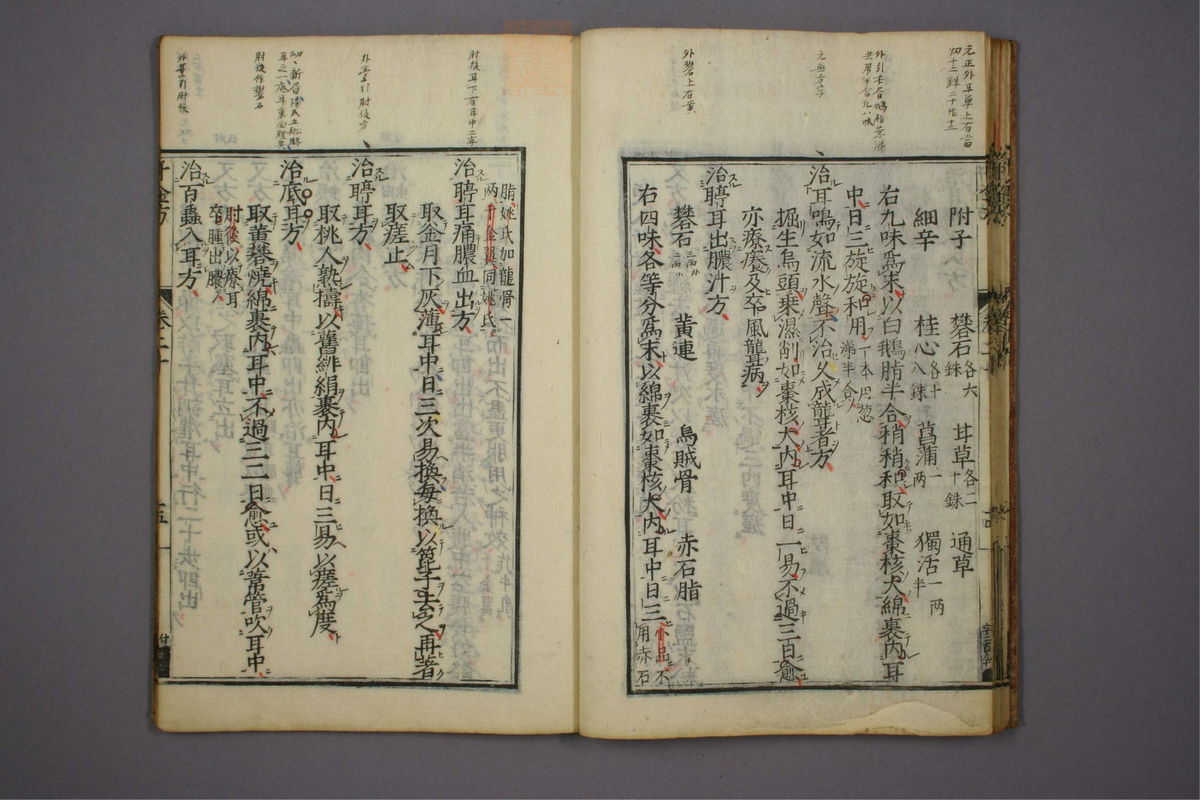 附子 礬石各六銖 甘草各二十銖 通草
細辛 桂心各十八銖 菖蒲一兩 獨活一兩半
右九味爲末以白鵝脂半合稍稍和取如棗核大綿裹內耳
中日三旋旋和用一本用葱涕半合
治耳鳴如流水聲不治久成聾者方
掘生烏頭乗濕削如棗核大內耳中日一易不過三百愈
亦療癢及卒風聾病
治聤耳出膿汁方
礬石 黃連 烏賊骨 赤石脂
右四味各等分爲末以綿裹如棗核大內耳中日三小品不用赤石
脂姚氏加龍骨一兩千金翼同姚氏
治聤耳痛膿血出方
取釜月下灰薄耳中日三次易換每換以箆子去之再著
取瘥止
治聤耳方
取桃人熟擣以舊緋絹裹內耳中日三易以瘥爲度
治底耳方
取黃礬燒綿裹內耳中不過三二日愈或以葦管吹耳中
肘後以療耳卒腫出膿
治百蟲入耳方
外礬上石黃
肘後作礬石